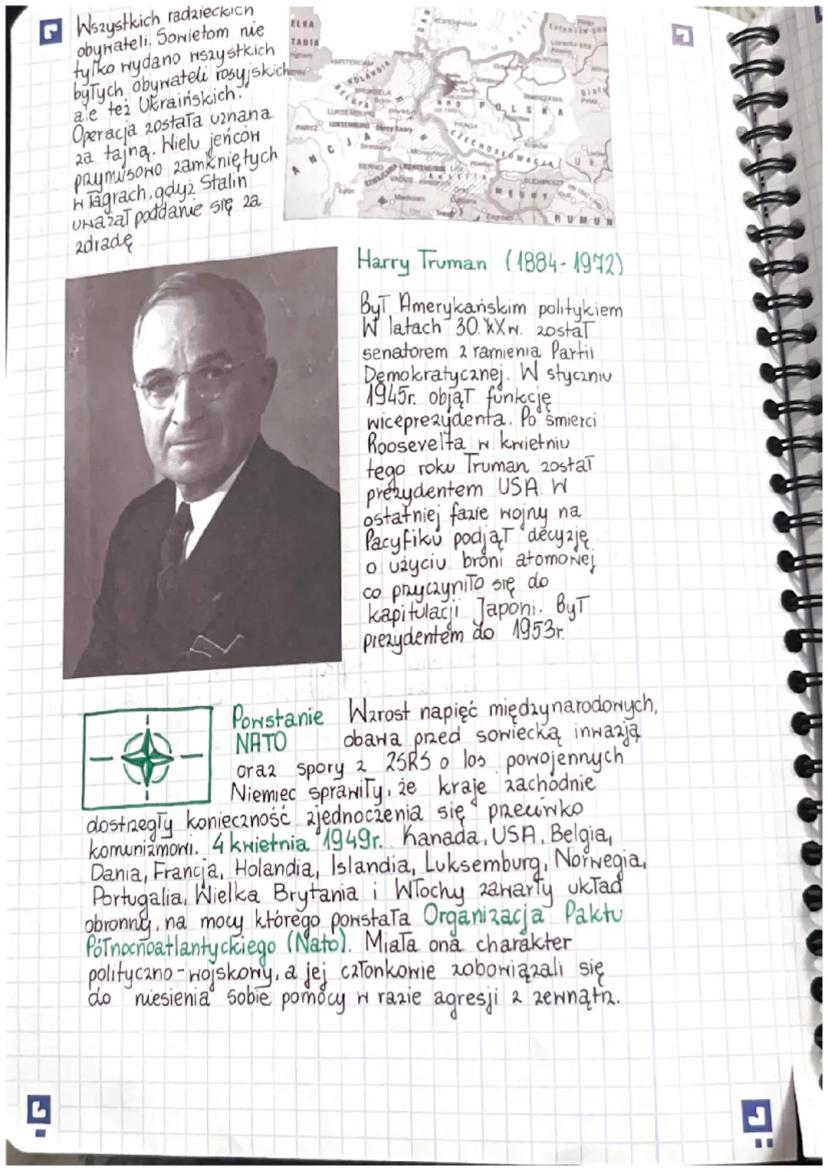 Wszystkich radzieckich
obywateli. Sowietom nie
tylko wydano wszystkich
byłych obywateli rosyjskich
ale też Ukraińskich.
Operacja została uznana
za tajną. Wielu jeńców
przymusowo zamkniętych
w łagrach, gdyż Stalin
uważał poddanie się za
zdradę
ELKA
TANIA
KOPENHAGA
AMSTERDAM
HOLANDIA
BRUKSELA
BELGIA
NRD
POLSKA
WARSZAWA
LUKSEMBURG
PARYŻ
PRAGA
CZECHOSŁOWACJA
ANCJA
BERNO
VADUZ
AUSTRIA
WĘGRY
BUDAPESZT
Lyon
RUMUN
Harry Truman (1884-1972)
Był Amerykańskim politykiem
W latach 30. XX w. został
senatorem z ramienia Partii
Demokratycznej. W styczniu
1945r. objął funkcję
wiceprezydenta. Po śmierci
Roosevelta w kwietniu
tego roku Truman został
prezydentem USA. W
ostatniej fazie wojny na
Pacyfiku podjął decyzję
o użyciu broni atomowej
co przyczyniło się do
kapitulacji Japoni. Był
prezydentem do 1953r.
Powstanie Wzrost napięć międzynarodowych,
NATO obawa przed sowiecką inwazją
oraz spory z ZSRS o los powojennych
Niemiec sprawiły, że kraje zachodnie
dostrzegły konieczność zjednoczenia się przeciwko
komunizmowi. 4 kwietnia 1949r. Kanada, USA, Belgia,
Dania, Francja, Holandia, Islandia, Luksemburg, Norwegia,
Portugalia, Wielka Brytania i Włochy zawarły układ
obronny, na mocy którego powstała Organizacja Paktu
Północnoatlantyckiego (Nato). Miała ona charakter
polityczno-wojskowy, a jej członkowie zobowiązali się
do niesienia sobie pomocy w razie agresji z zewnątrz.